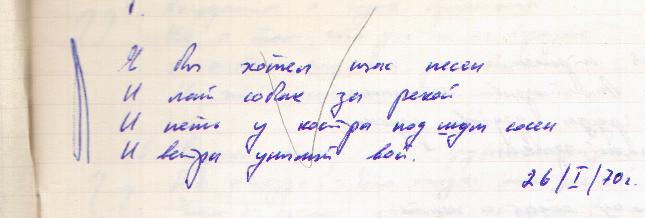 Я бы хотел шак песен
И лай собак за рекой
И петь у костра под шум сосен
И ветра унылый вой.
26/I/70г.